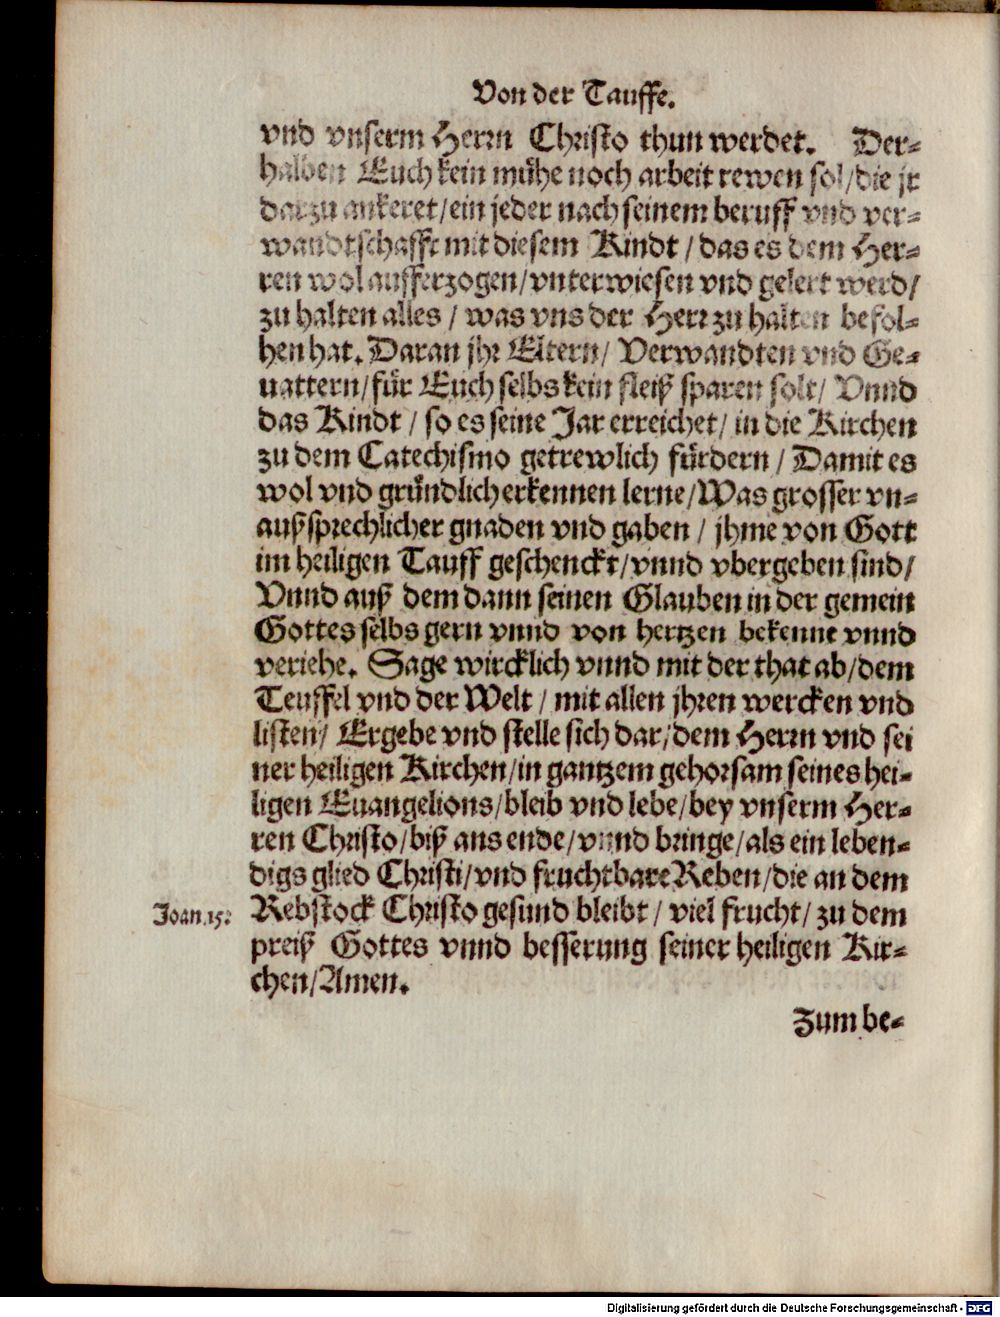 Von der Tauffe.
vnd vnserm Herrn Christo thun werdet. Der-
halben Euch kein mühe noch arbeit rewen sol/die jr
darzu ankeret/ein jeder nach seinem beruff vnd ver-
wandtschafft mit diesem Kindt/das es dem Her-
ren wol aufferzogen/vnterwiesen vnd gelert werd/
zu halten alles/was vns der Herr zu halten befol-
hen hat. Daran jhr Eltern/Verwandten vnd Ge-
uattern/für Euch selbs kein fleiß sparen solt/Vnnd
das Kindt/so es seine Jar erreichet/in die Kirchen
zu dem Catechismo getrewlich fürdern/Damit es
wol vnd gründlich erkennen lerne/Was grosser vn-
außsprechlicher gnaden vnd gaben/jhme von Gott
im heiligen Tauff geschenckt/vnnd vbergeben sind/
Vnnd auß dem dann seinen Glauben in der gemein
Gottes selbs gern vnnd von hertzen bekenne vnnd
veriehe. Sage wircklich vnnd mit der that ab/dem
Teuffel vnd der Welt/mit allen jhren wercken vnd
listen/Ergebe vnd stelle sich dar/dem Herrn vnd sei
ner heiligen Kirchen/in gantzem gehorsam seines hei-
ligen Euangelions/bleib vnd lebe/bey vnserm Her-
ren Christo/biß ans ende/vnnd bringe/als ein leben-
digs glied Christi/vnd fruchtbare Reben/die an dem
Joan.15. Rebstock Christo gesund bleibt/viel frucht/zu dem
preiß Gottes vnnd besserung seiner heiligen Kir-
chen/Amen.
Zum be-
Digitalisierung gefördert durch die Deutsche Forschungsgemeinschaft - DFG